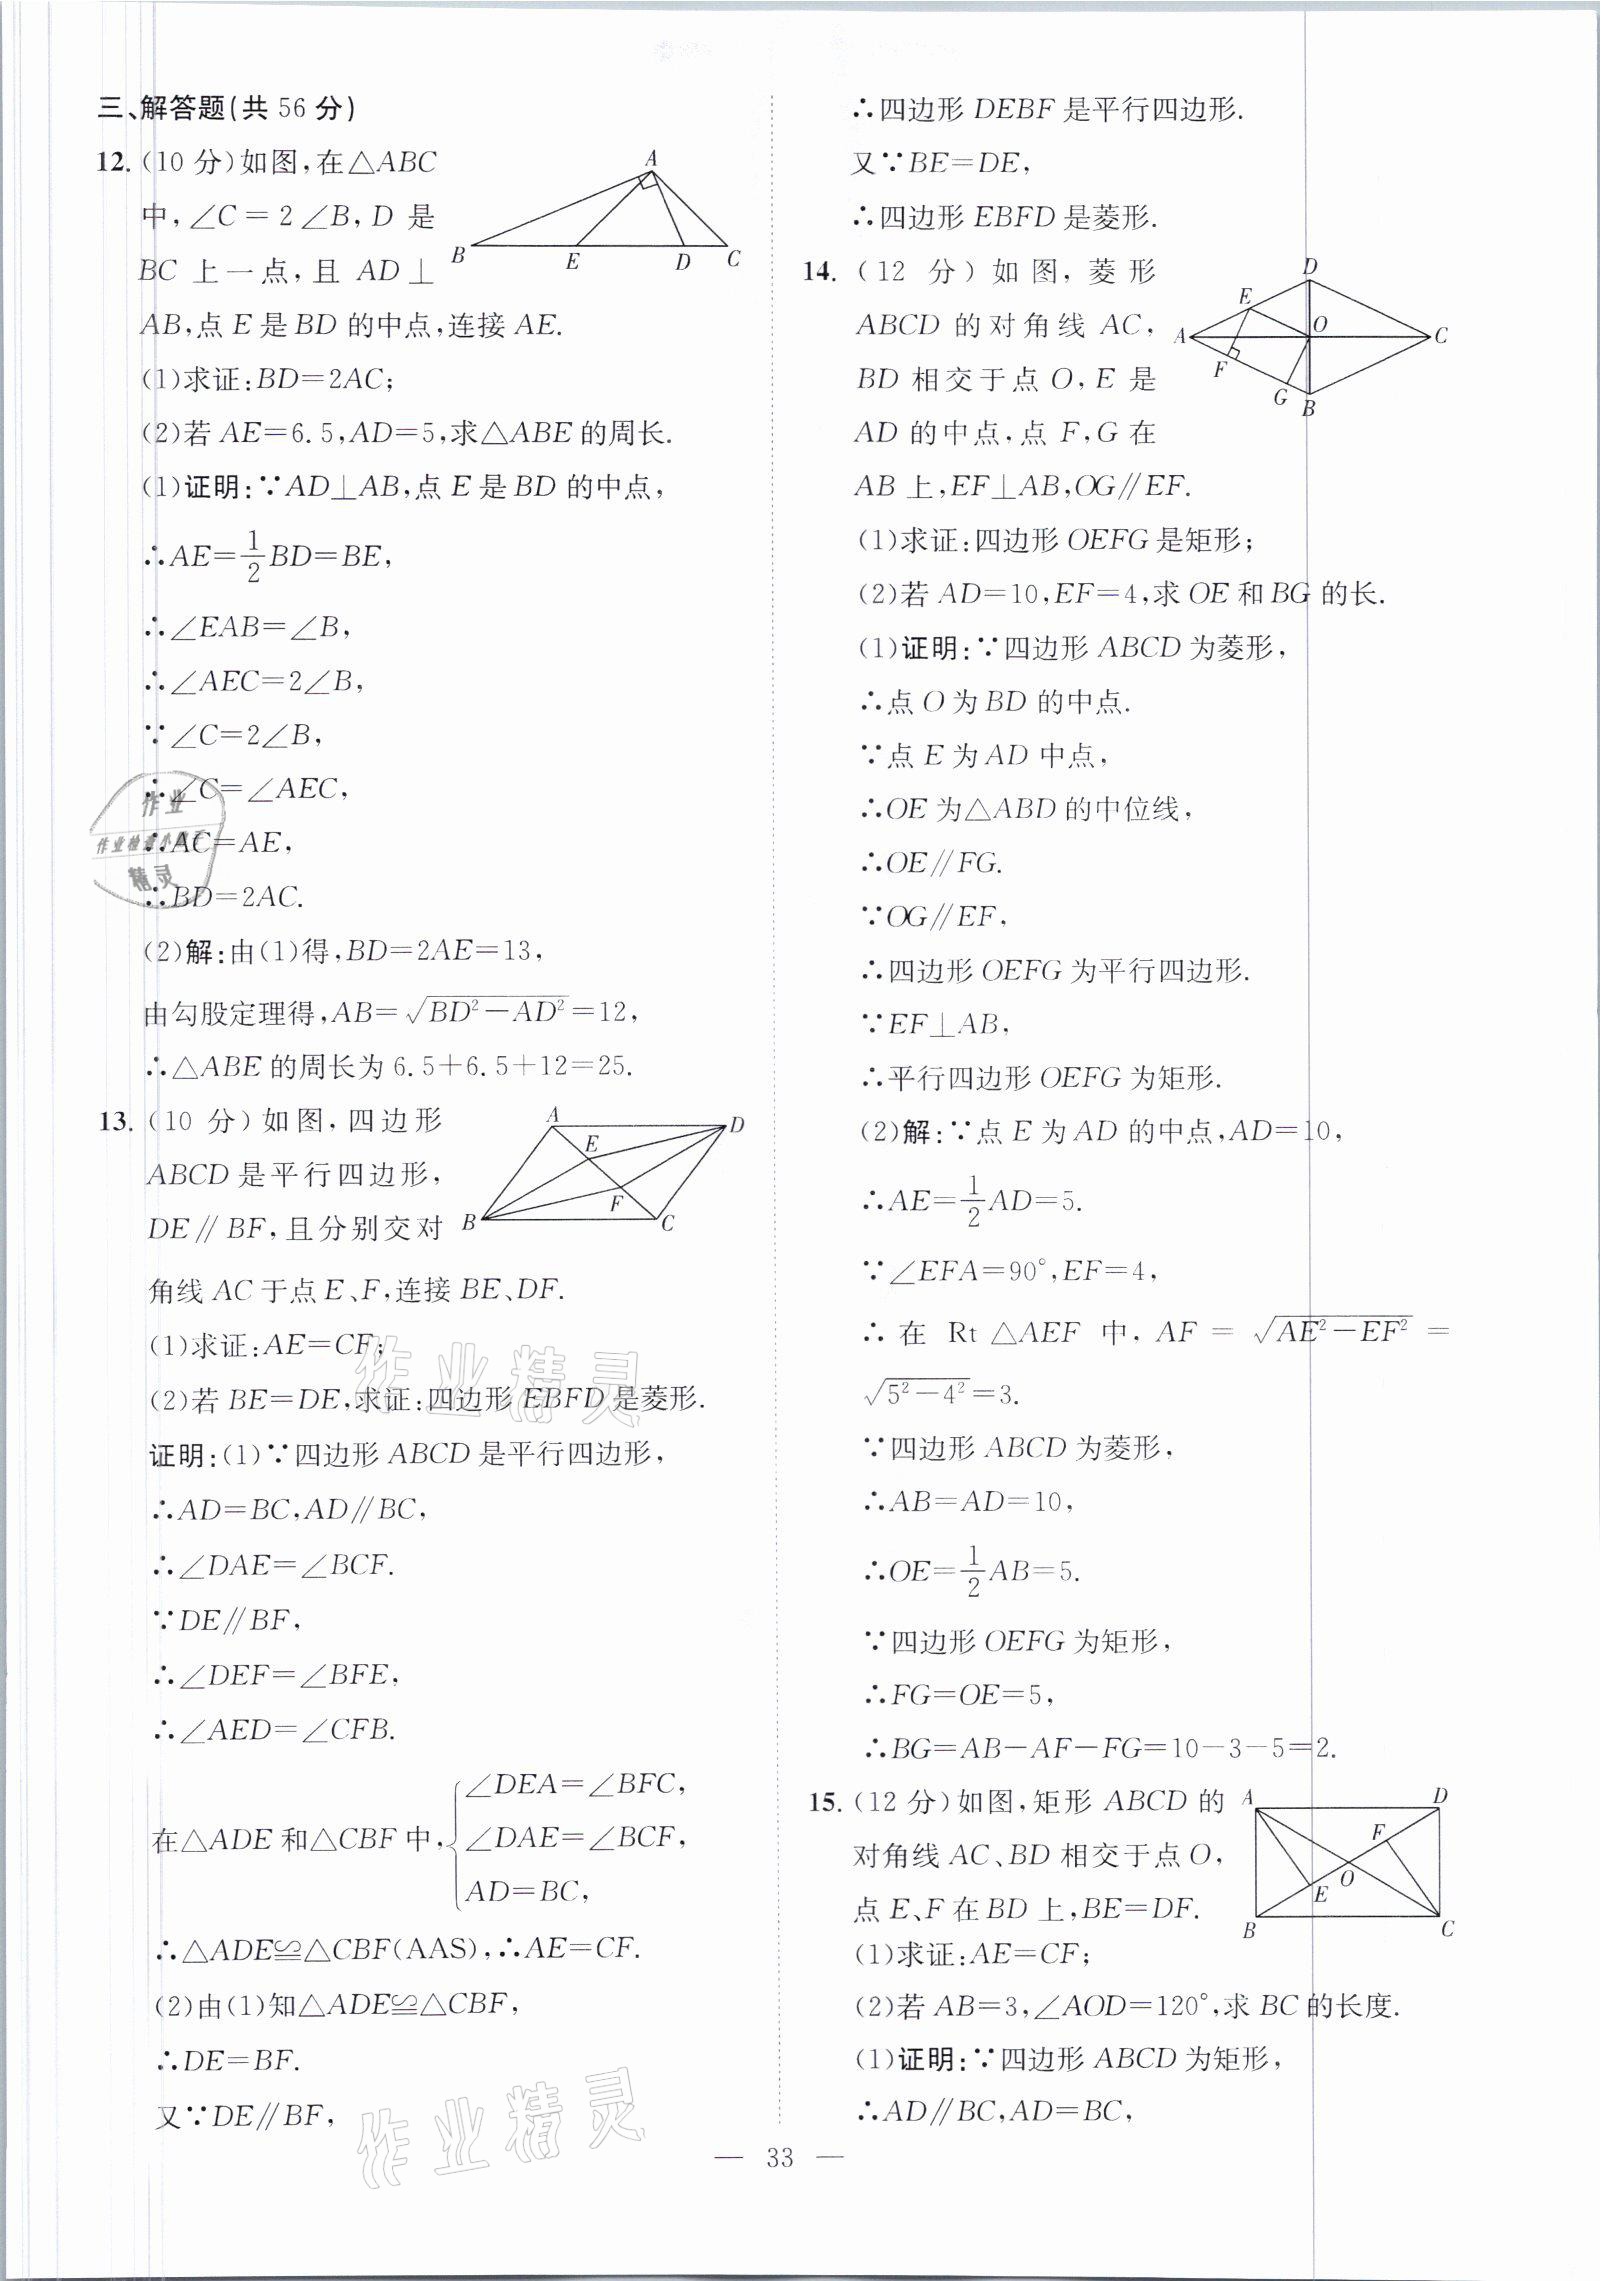 三、解答题(共 56 分)
12. (10 分)如图,在△ABC
中,∠C=2∠B,D 是
BC 上一点,且 AD⊥
AB,点 E 是 BD 的中点,连接 AE.
(1)求证:BD=2AC;
(2)若 AE=6.5,AD=5,求△ABE 的周长.
(1)证明:∵AD⊥AB,点 E 是 BD 的中点,
∴AE=1/2BD=BE,
∴∠EAB=∠B,
∴∠AEC=2∠B,
∵∠C=2∠B,
∴∠C=∠AEC,
∴AC=AE,
∴BD=2AC.
(2)解:由(1)得,BD=2AE=13,
由勾股定理得,AB=√(BD²-AD²)=12,
∴△ABE 的周长为 6.5+6.5+12=25.
A
B
E
D
C
13. (10 分)如图,四边形
ABCD 是平行四边形,
DE∥BF,且分别交对
角线 AC 于点 E、F,连接 BE、DF.
(1)求证:AE=CF;
(2)若 BE=DE,求证:四边形 EBFD 是菱形.
证明:(1)∵四边形 ABCD 是平行四边形,
∴AD=BC,AD∥BC,
∴∠DAE=∠BCF.
∵DE∥BF,
∴∠DEF=∠BFE,
∴∠AED=∠CFB.
在△ADE 和△CBF 中,{∠DEA=∠BFC,
∠DAE=∠BCF,
AD=BC,
∴△ADE≌△CBF(AAS),∴AE=CF.
(2)由(1)知△ADE≌△CBF,
∴DE=BF.
又∵DE∥BF,
A
D
E
F
B
C
∴四边形 DEBF 是平行四边形.
又∵BE=DE,
∴四边形 EBFD 是菱形.
14. (12 分)如图,菱形
ABCD 的对角线 AC,
BD 相交于点 O,E 是
AD 的中点,点 F,G 在
AB 上,EF⊥AB,OG∥EF.
(1)求证:四边形 OEFG 是矩形;
(2)若 AD=10,EF=4,求 OE 和 BG 的长.
(1)证明:∵四边形 ABCD 为菱形,
∴点 O 为 BD 的中点.
∵点 E 为 AD 中点,
∴OE 为△ABD 的中位线,
∴OE∥FG.
∵OG∥EF,
∴四边形 OEFG 为平行四边形.
∵EF⊥AB,
∴平行四边形 OEFG 为矩形.
(2)解:∵点 E 为 AD 的中点,AD=10,
∴AE=1/2AD=5.
∵∠EFA=90°,EF=4,
∴在 Rt△AEF 中,AF=√(AE²-EF²)=
√(5²-4²)=3.
∵四边形 ABCD 为菱形,
∴AB=AD=10,
∴OE=1/2AB=5.
∵四边形 OEFG 为矩形,
∴FG=OE=5,
∴BG=AB-AF-FG=10-3-5=2.
D
E
O
A
C
F
G
B
15. (12 分)如图,矩形 ABCD 的
对角线 AC、BD 相交于点 O,
点 E、F 在 BD 上,BE=DF.
(1)求证:AE=CF;
(2)若 AB=3,∠AOD=120°,求 BC 的长度.
(1)证明:∵四边形 ABCD 为矩形,
∴AD∥BC,AD=BC,
A
D
F
O
E
B
C
— 33 —
作业
作业检查小助手
精灵
作业精灵
作业精灵